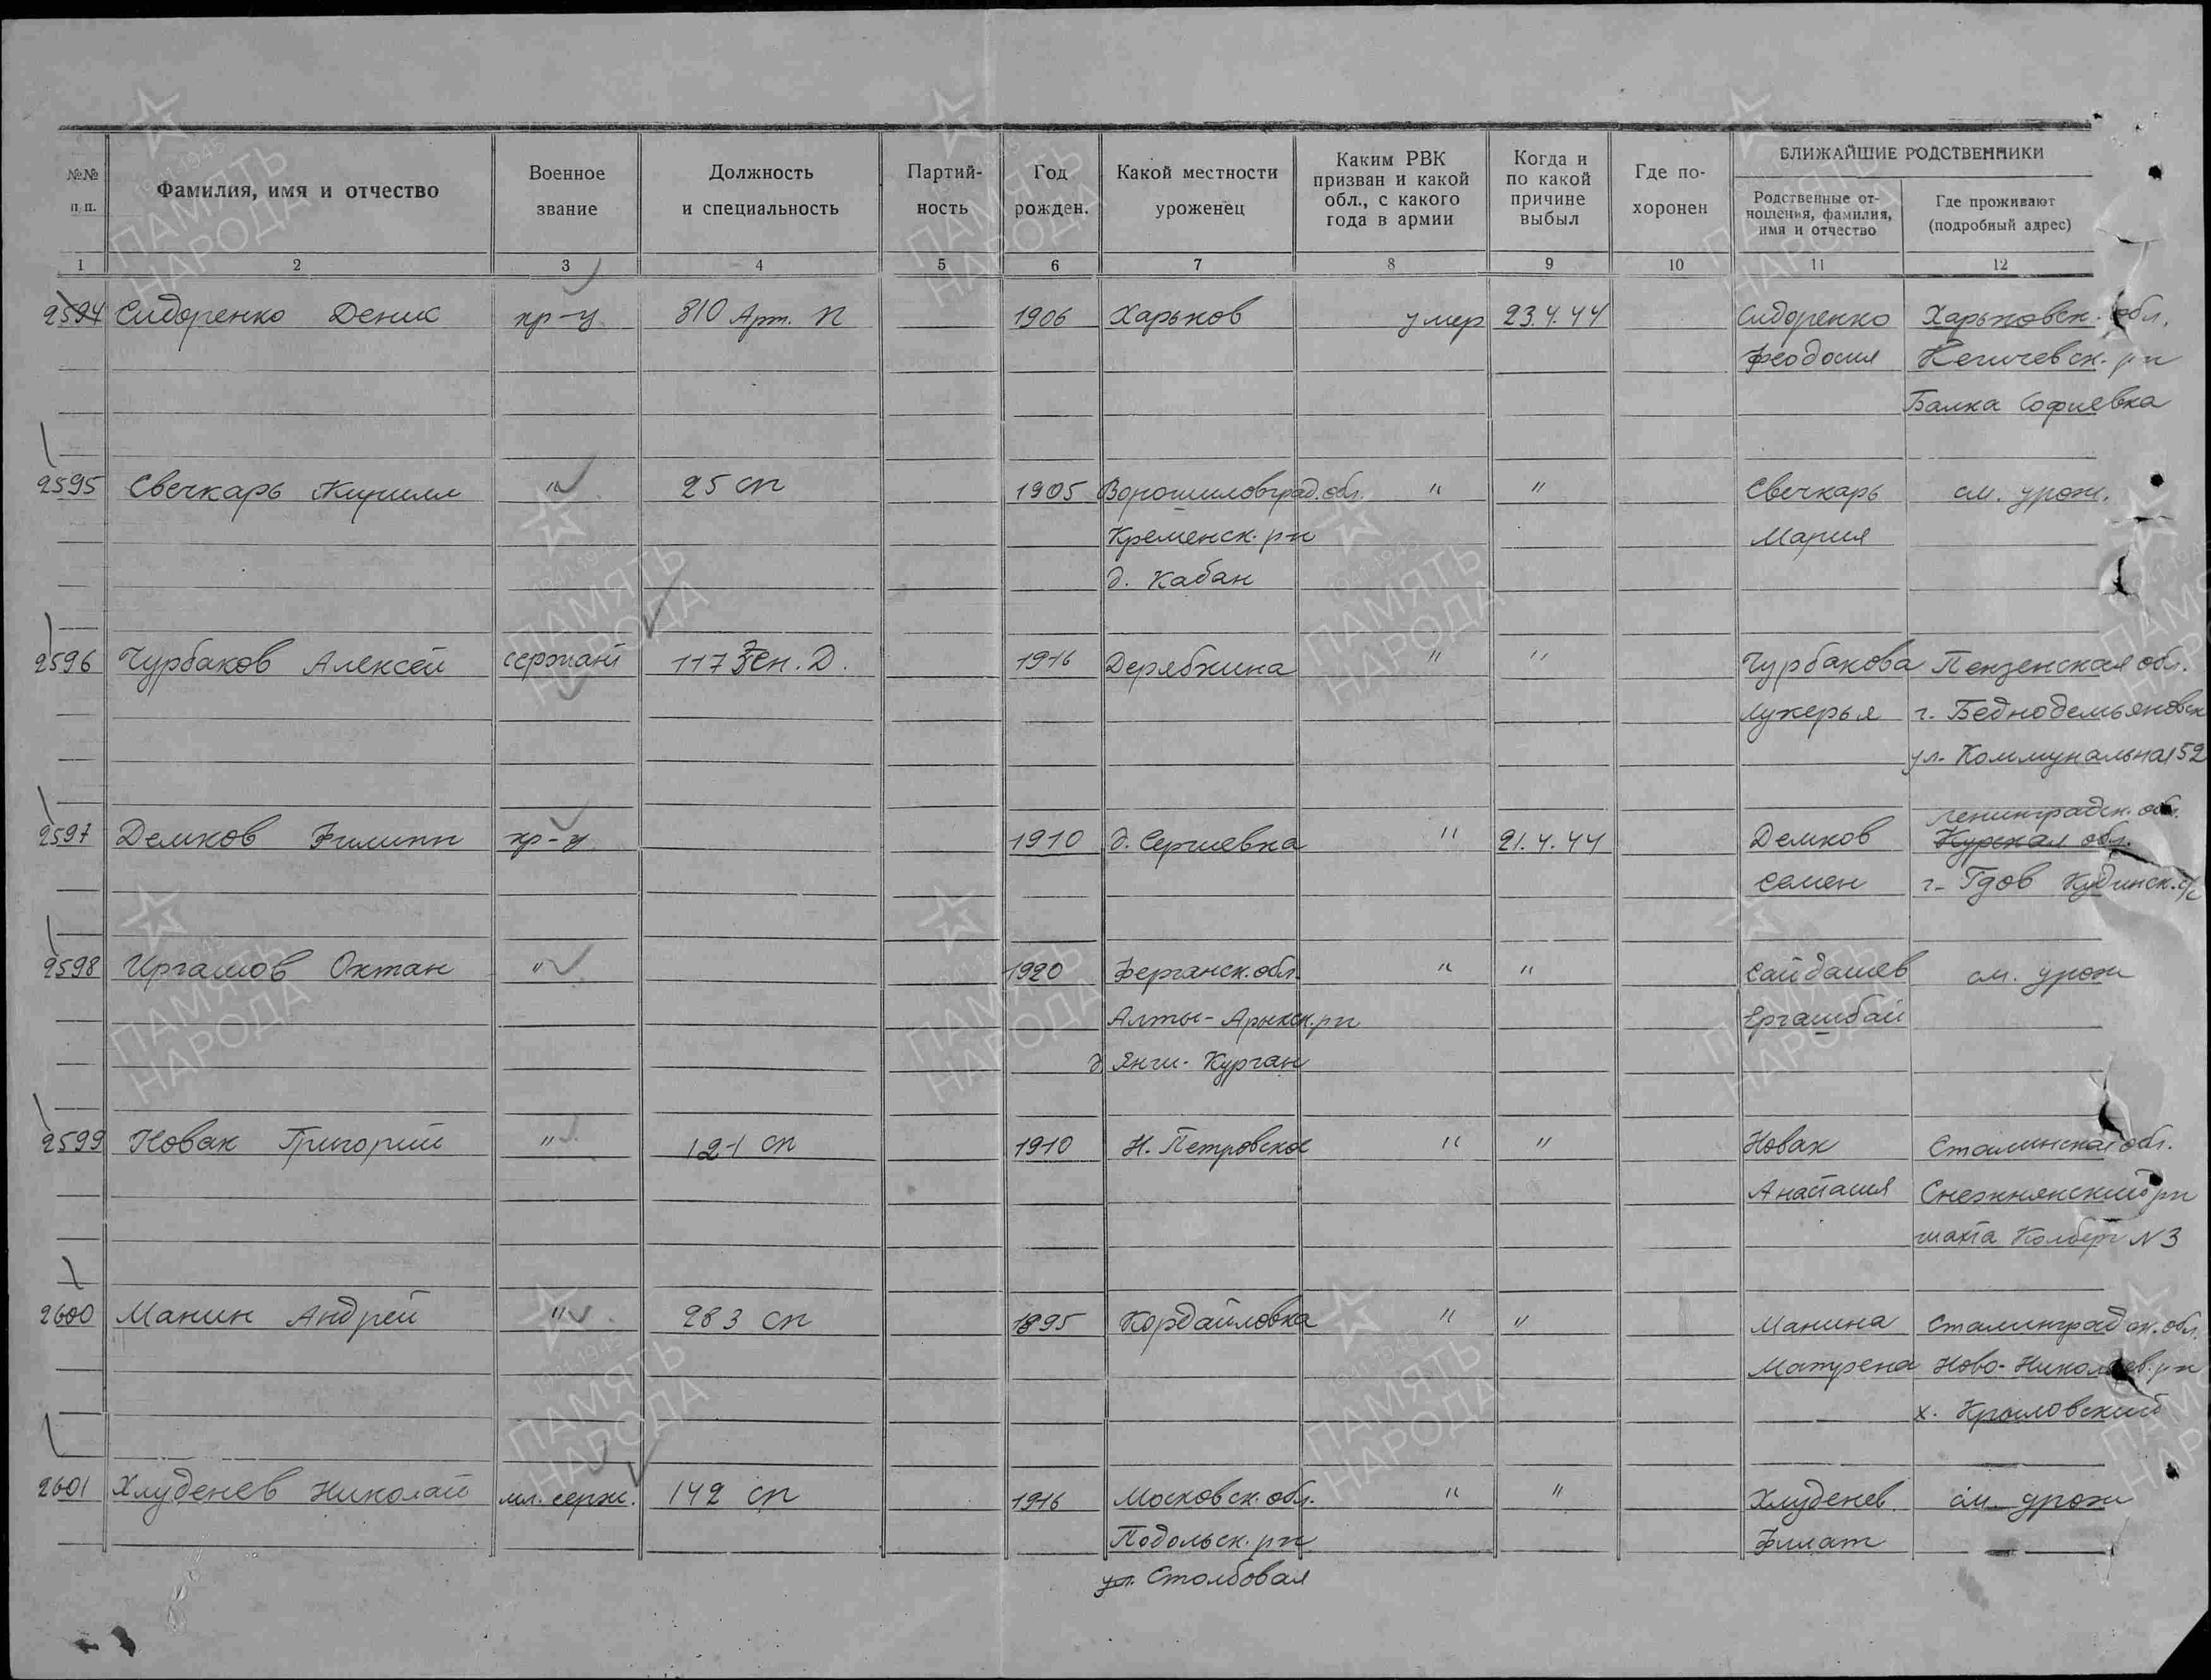 №№ п/п. Фамилия, имя и отчество Военное звание Должность и специальность Партий-ность Год рожден. Какой местности уроженец Каким РВК призван и какой обл., с какого года в армии Когда и по какой причине выбыл Где по-хоронен БЛИЖАЙШИЕ РОДСТВЕННИКИ
Родственные от-ношения, фамилия, имя и отчество Где проживают (подробный адрес)
1 2 3 4 5 6 7 8 9 10 11 12
2594 Сидоренко Денис кр-ц 810 Арт. П 1906 Харьков умер 23.4.44 Сидоренко Харьковск. обл.
Феодосия Кегичевск. р-н
Балка Софиевка
2595 Свечкарь Кирилл " 25 сп 1905 Ворошиловград. обл. " " Свечкарь см. урож.
Кременск. р-н Мария
д. Кабан
2596 Чурбаков Алексей сержант 117 Зен. Д. 1916 Дерябкина " " Чурбакова Пензенская обл.
Лукерья г. Беднодемьяновск
ул. Коммунальная 52
Ленинградск. обл.
2597 Демков Филипп кр-ц 1910 д. Сергиевка " 21.4.44 Демков Курская обл.
Семен г. Гдов Кудинск. с/с
2598 Иргашов Октан " 1920 Ферганск. обл. " " Сайдашев см. урож
Алты-Арыкск. р-н Ергашбай
д. Янги-Курган
2599 Новак Григорий " 121 сп 1910 Н. Петровское " " Новак Сталинская обл.
Анастасия Снежнянский р-н
шахта Колберг N 3
2600 Манин Андрей " 283 сп 1895 Кордайловка " " Манина Сталинградск. обл.
Матрена Ново-Николаев. р-н
х. Крыловский
2601 Хлуденев Николай мл. серж. 142 сп 1916 Московск. обл. " " Хлуденев см. урож
Подольск. р-н Филат
ул. Столбовая
1941-1945
ПАМЯТЬ
НАРОДА